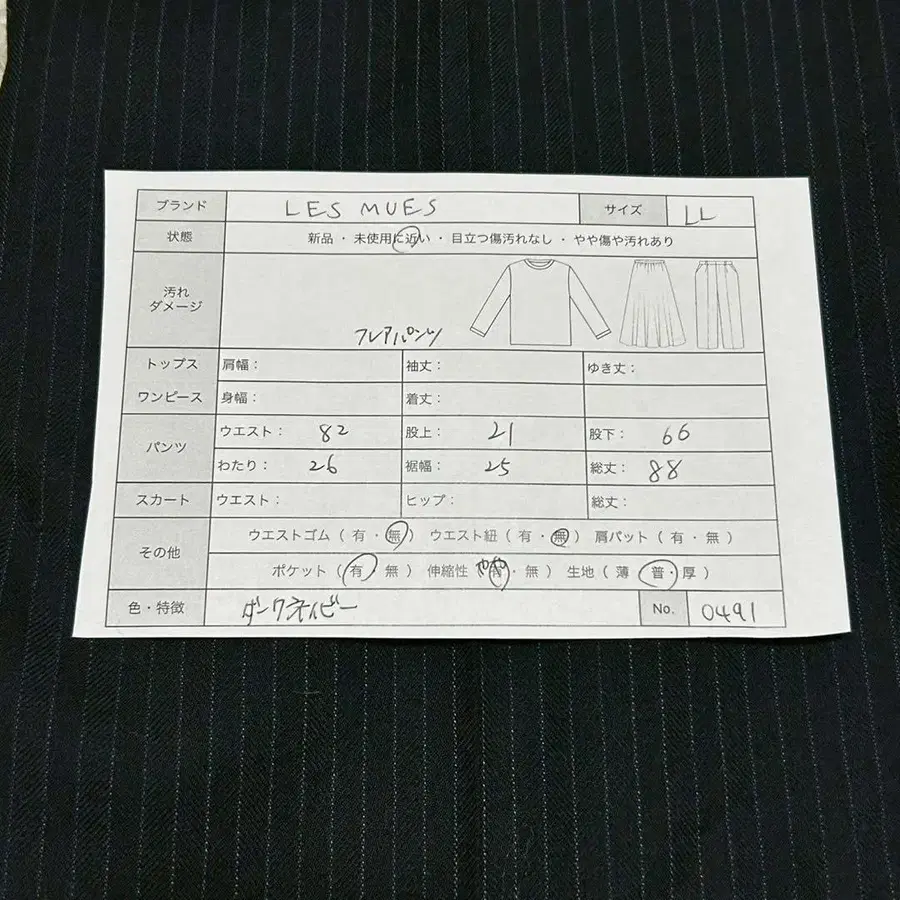 ブランド LES MUES サイズ LL
状態 新品 ・ 未使用に近い ・ 目立つ傷汚れなし ・ やや傷や汚れあり
汚れ
ダメージ
フレアパンツ
トップス 肩幅： 袖丈： ゆき丈：
ワンピース 身幅： 着丈：
パンツ
ウエスト： 82 股上： 21 股下： 66
わたり： 26 裾幅： 25 総丈： 88
スカート ウエスト： ヒップ： 総丈：
その他
ウエストゴム （ 有 ・ 無 ） ウエスト紐 （ 有 ・ 無 ） 肩パット （ 有 ・ 無 ）
ポケット （ 有 ・ 無 ） 伸縮性 （ やや 有 ・ 無 ） 生地 （ 薄 ・ 普 ・ 厚 ）
色・特徴 ダークネイビー No. 0491